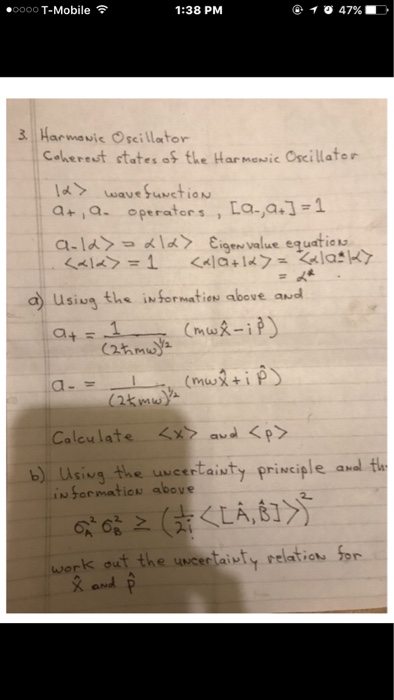 T-Mobile 1:38 PM 47%
3. Harmonic Oscillator
Coherent states of the Harmonic Oscillator
|α> wavefunction
a+, a- operators, [a-,a+] = 1
a-|α> = α|α> Eigenvalue equation
<α|α> = 1 <α|a+|α> = <α|a-*|α>
= α*
a) Using the information above and
a+ = 1/(2ħmω)^½ (mωx̂ - ip̂)
a- = 1/(2ħmω)^½ (mωx̂ + ip̂)
Calculate <x> and <p>
b) Using the uncertainty principle and the
information above
σ_A² σ_B² ≥ (1/2i <[Â,B̂]>)²
work out the uncertainty relation for
x̂ and p̂